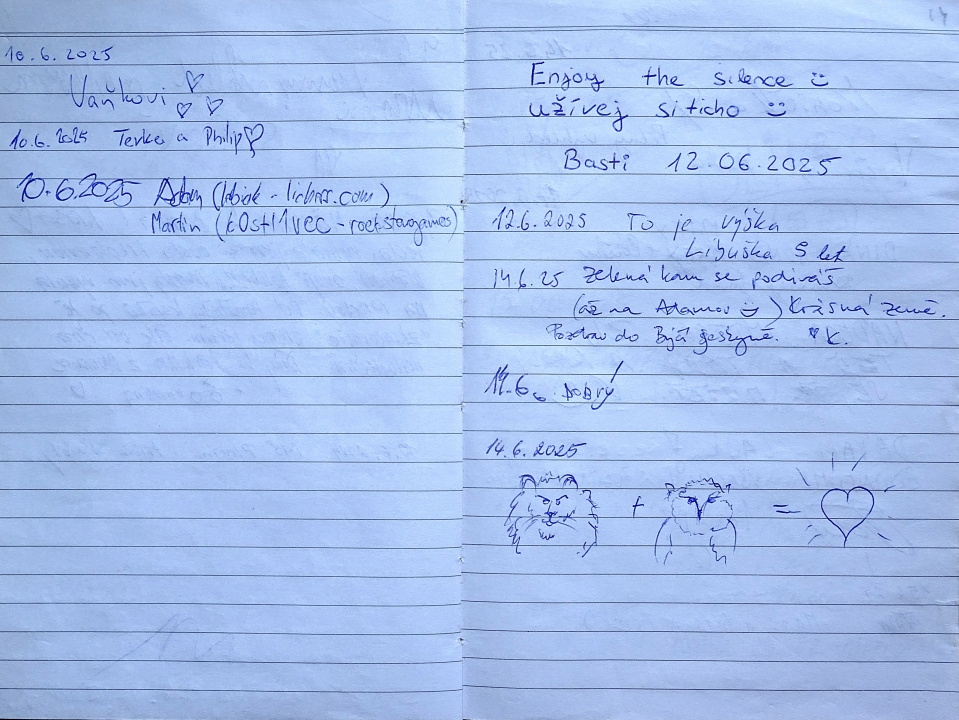 10.6.2025
Vaňkovi
10.6.2025 Terka a Philip
10.6.2025 Adam
Martin (k0stl1vec - rockstargames)
Enjoy the silence
užívej si ticho
Basti 12.06.2025
12.6.2025 To je výška
Libuška 5 let
14.6.25 Zelená kam se podíváš
(až na Adamov ) Krásná země.
Pozdrav do Býčí jeskyně. K.
14.6. Dobrý!
14.6.2025
+ =